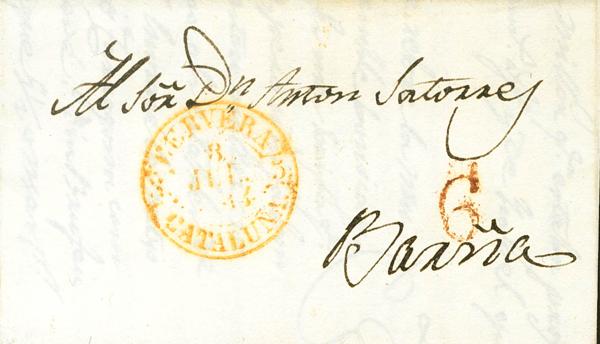 Al Sõr Dn Anton Satorres
CERVERA
8.
JUL.
CATALUÑA
6
Barña